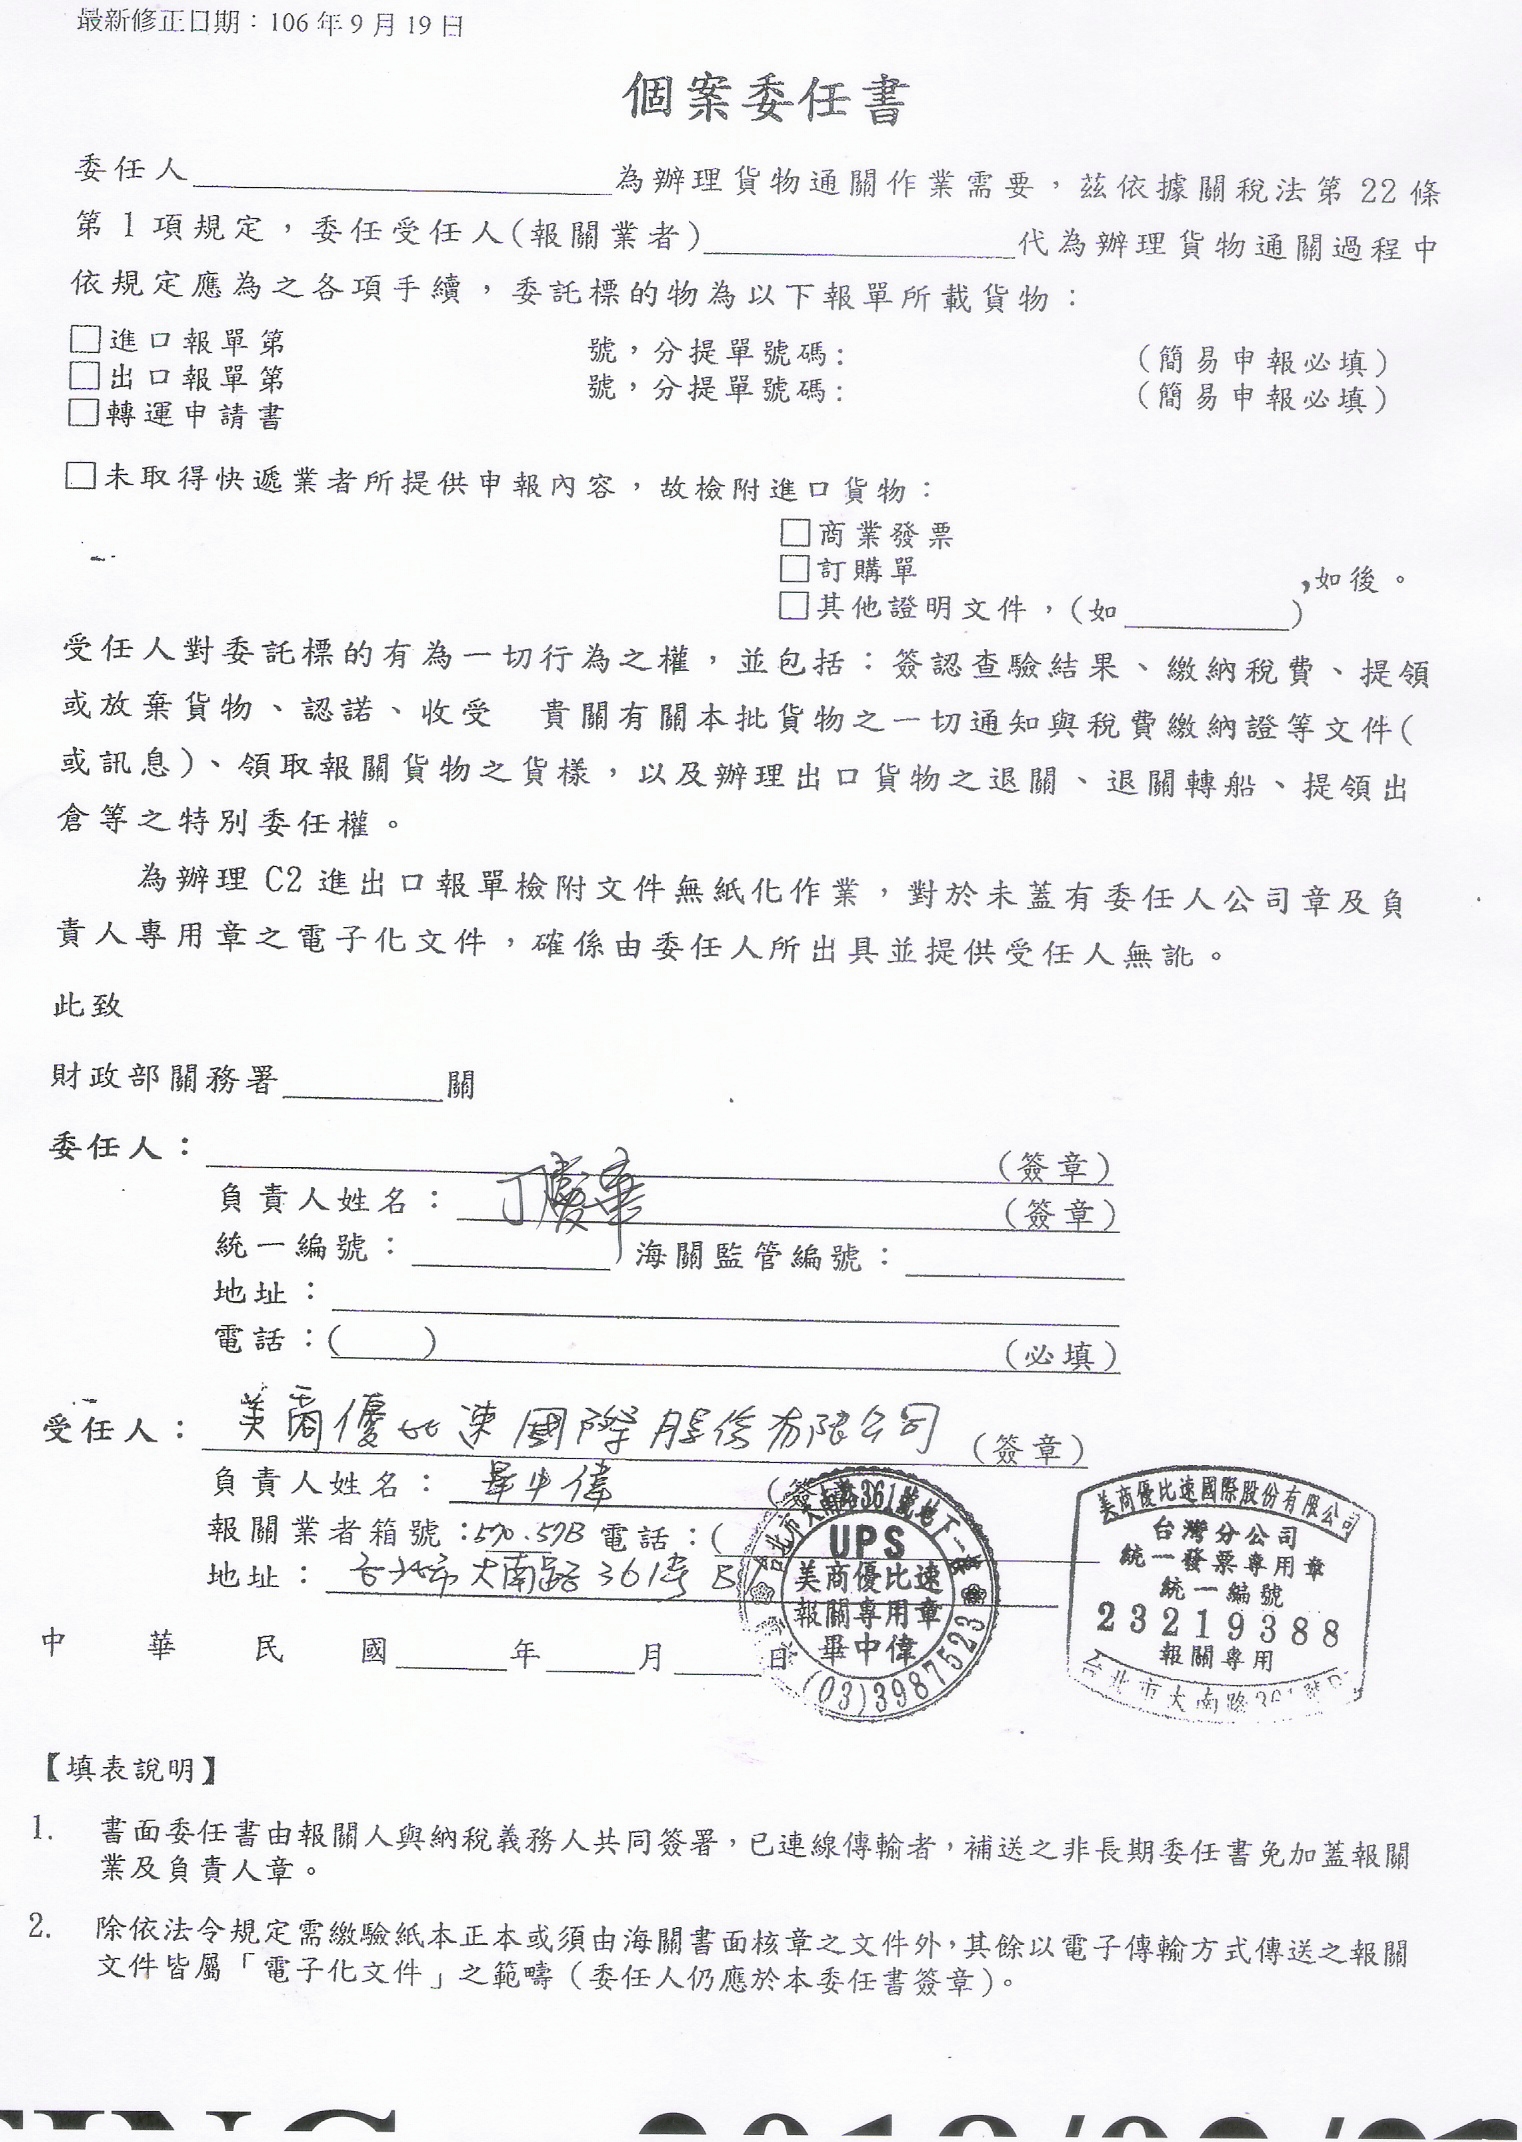 最新修正日期：106 年 9 月 19 日
個案委任書
委任人____為辦理貨物通關作業需要，茲依據關稅法第 22 條
第 1 項規定，委任受任人(報關業者)____代為辦理貨物通關過程中
依規定應為之各項手續，委託標的物為以下報單所載貨物：
□進口報單第 號，分提單號碼: (簡易申報必填)
□出口報單第 號，分提單號碼: (簡易申報必填)
□轉運申請書
□未取得快遞業者所提供申報內容，故檢附進口貨物：
□商業發票
□訂購單
,如後。
□其他證明文件，(如____)
受任人對委託標的有為一切行為之權，並包括：簽認查驗結果、繳納稅費、提領
或放棄貨物、認諾、收受 貴關有關本批貨物之一切通知與稅費繳納證等文件(
或訊息)、領取報關貨物之貨樣，以及辦理出口貨物之退關、退關轉船、提領出
倉等之特別委任權。
為辦理 C2 進出口報單檢附文件無紙化作業，對於未蓋有委任人公司章及負
責人專用章之電子化文件，確係由委任人所出具並提供受任人無訛。
此致
財政部關務署____關
委任人：____(簽章)
負責人姓名：丁慶華 (簽章)
統一編號：____海關監管編號：____
地址：____
電話：( )____(必填)
受任人：美商優比速國際股份有限公司 (簽章)
負責人姓名：畢中偉 (簽
報關業者箱號：570.57B 電話：(
地址：台北市大南路361號B
中華民國____年____月____日
台北市大南路361號地下一
UPS
美商優比速
報關專用章
畢中偉
(03)3987523
美商優比速國際股份有限公司
台灣分公司
統一發票專用章
統一編號
23219388
報關專用
台北市大南路361號
【填表說明】
1. 書面委任書由報關人與納稅義務人共同簽署，已連線傳輸者，補送之非長期委任書免加蓋報關
業及負責人章。
2. 除依法令規定需繳驗紙本正本或須由海關書面核章之文件外，其餘以電子傳輸方式傳送之報關
文件皆屬「電子化文件」之範疇（委任人仍應於本委任書簽章）。